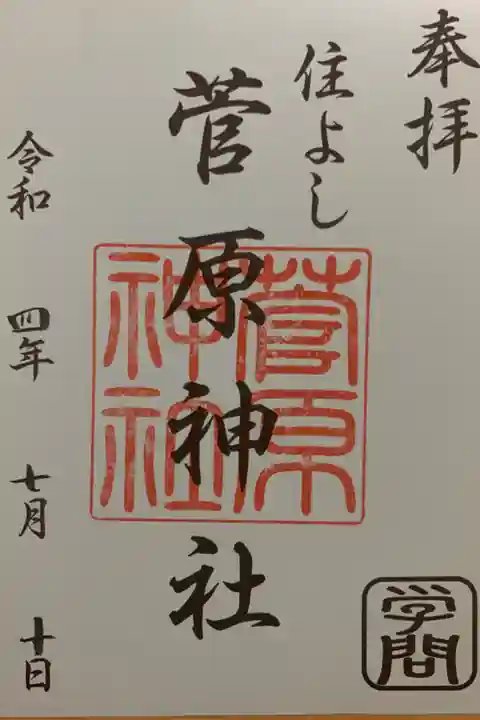 奉拝
住よし
菅原神社
菅原
神社
令和 四年 七月 十日
学問